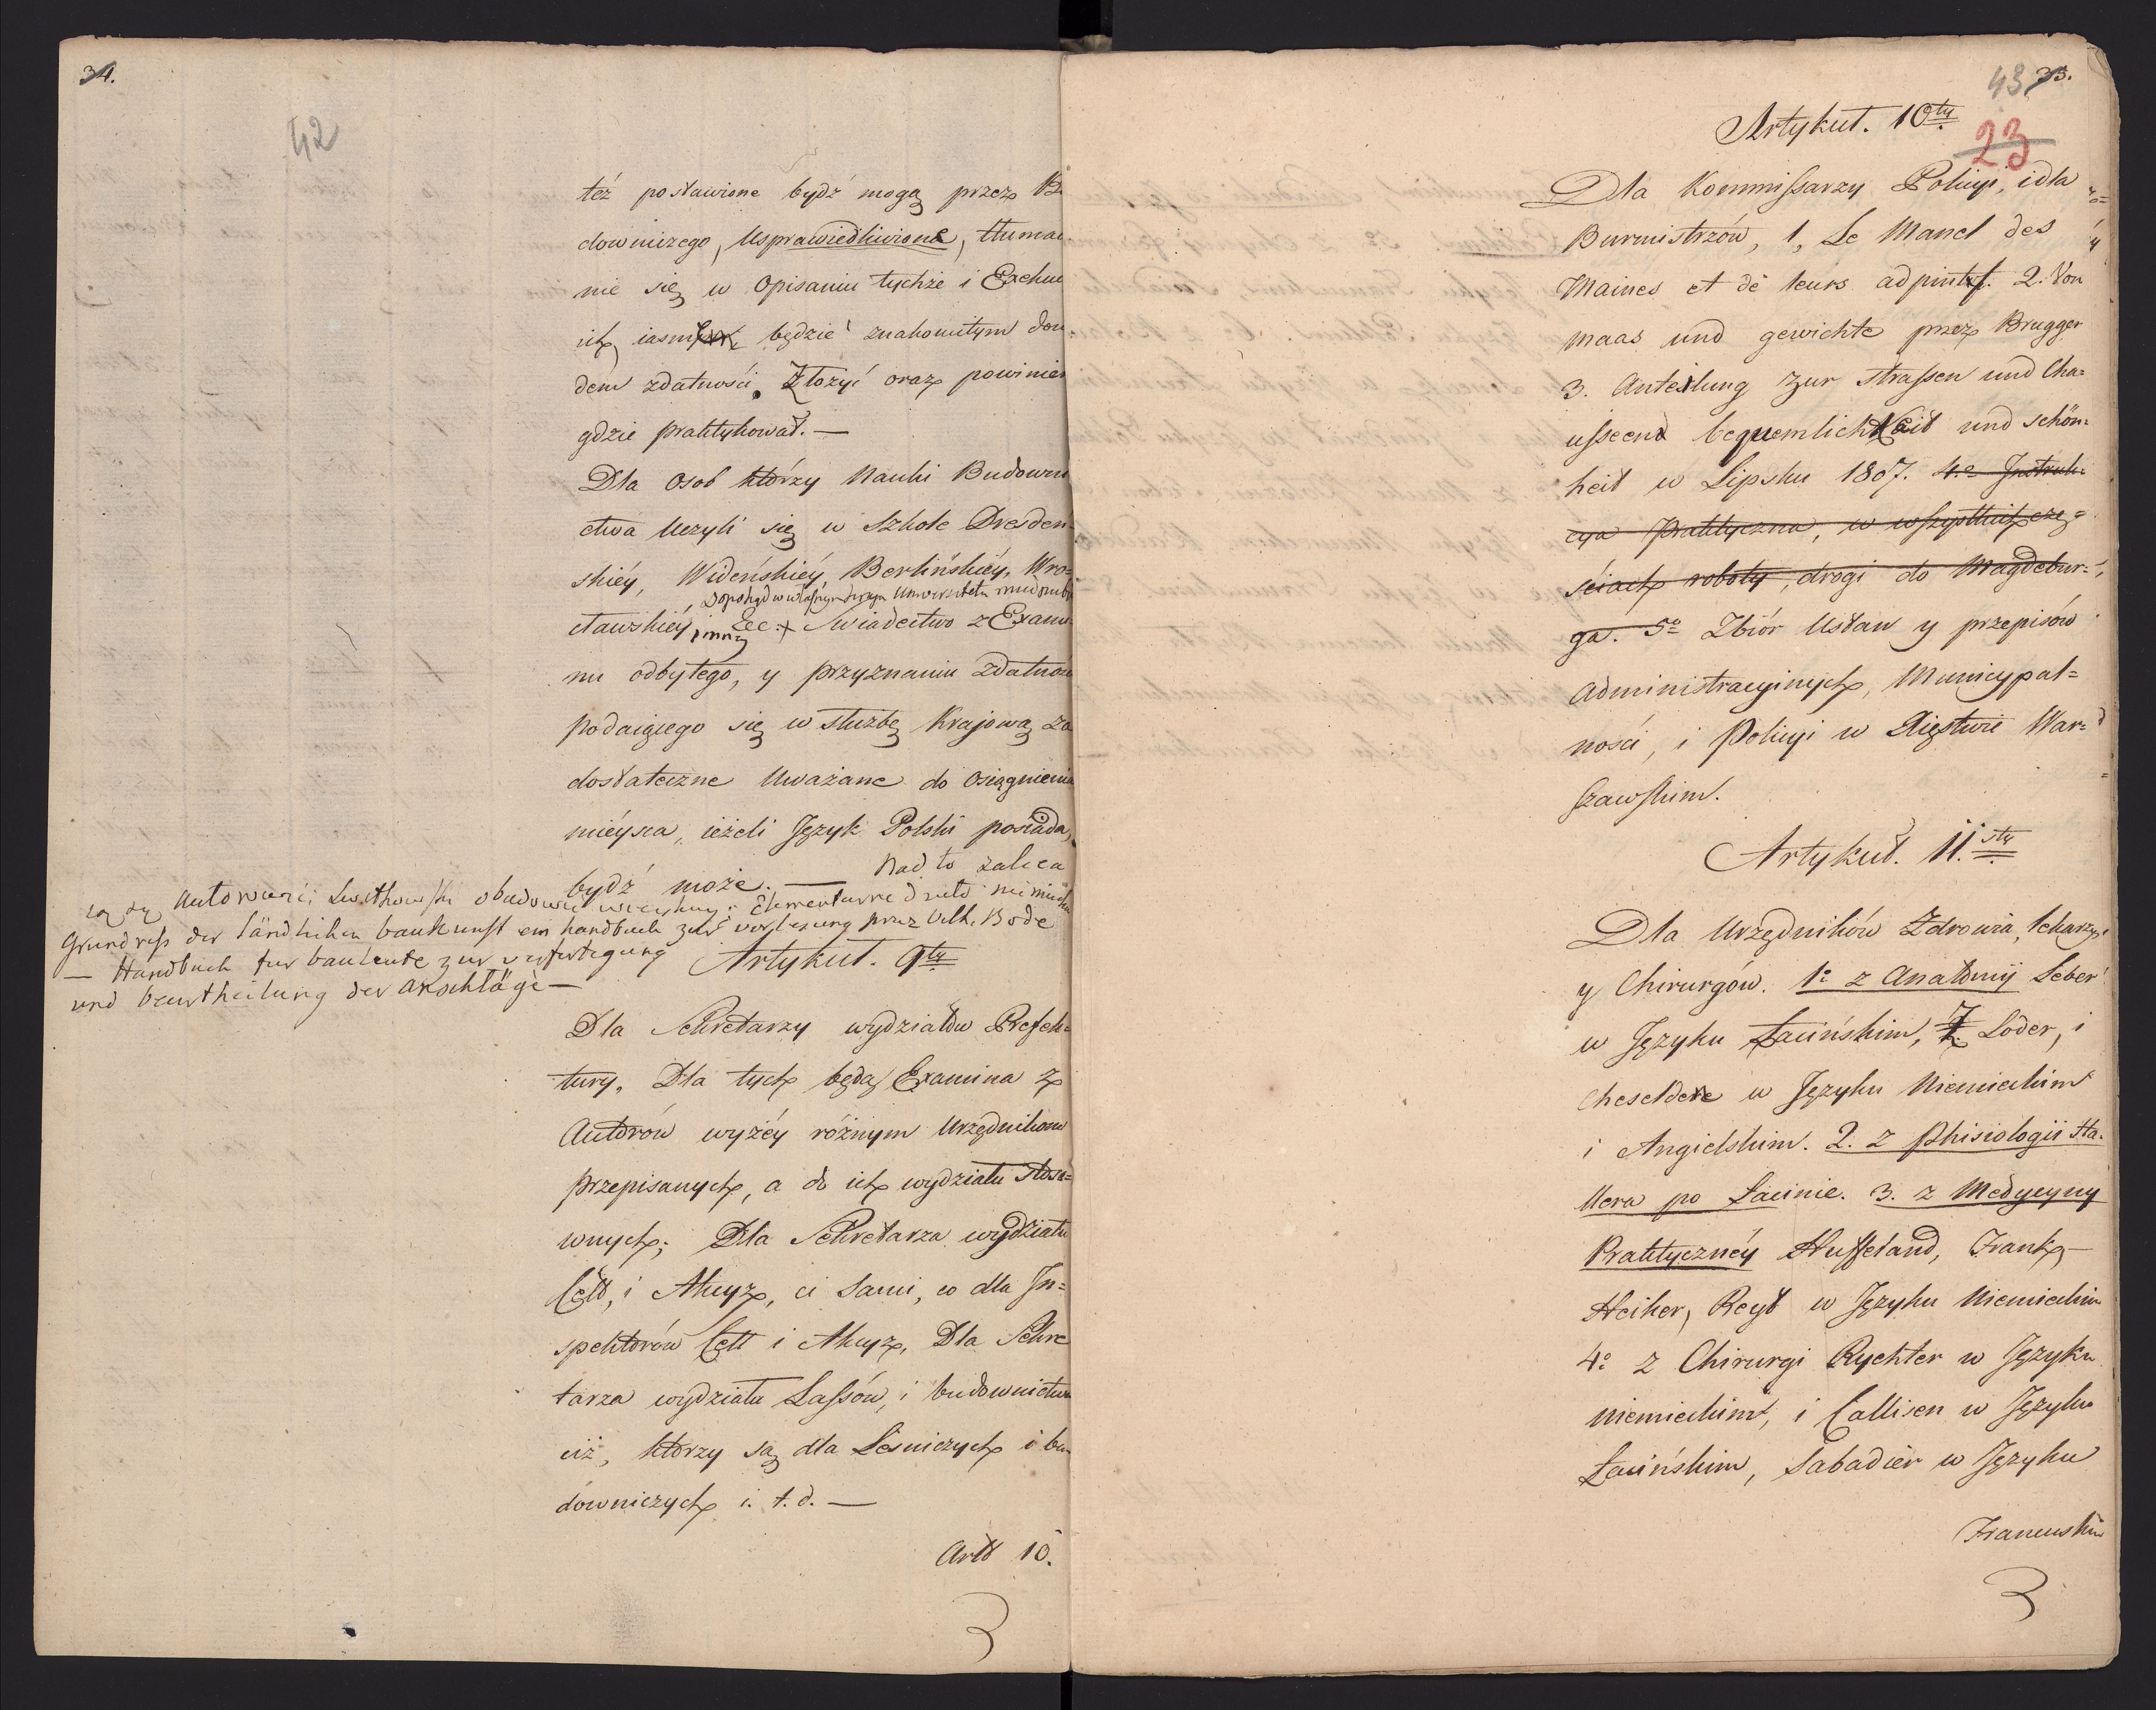 34.
42
też postawione bydź mogą przez Bu
downiczego, Usprawiedliwione, tłuma
nie się w Opisaniu tychże i Exeku
ich, będzie znakomitym dow
dem zdatności. Złożyć oraz powinien
gdzie praktykował. —
Dla Osob którzy Nauki Budowni
ctwa Uczyli się w Szkole Drezden-
skiéy, Wideńskiéy, Berlińskiéy, Wro=
dopokąd w własnym kraju Uniwersitetu
cławskiéy i inny &c: + Swiadectwo z Exami
nu odbytego, y przyznaniu zdatnoś
podaiącego się w służbę Krajową za
dostateczne Uważane do Osiągnienia
mieysca, ieżeli Język Polski posiada,
bydź może. — Nad to zaleca
są Autorowie; obudowie wieyskiey; Elementarne
Grundriss der ländlichen baukunst ein handbuch zur vorlesung przez Bode
— Handbuch fur bauleute zur verfertigung
und beurtheilung der Anschläge —
Artykuł. 9ty
Dla Sekretarzy wydziałów Prefek=
tury, Dla tych będą Examina z
Autorów wyżéy różnym Urzędnikom
przepisanych, a do ich wydziału stoso=
wnych; Dla Sekretarza wydziału
Cełł, i Akcyz, ci sami, co dla In=
spektorów Cełł i Akcyz, Dla Sekre
tarza wydziału Lassów, i budownictwa
ciż, którzy są dla Leśniczych i bu
downiczych i. t. d. —
Artt 10.
43 35.
23
Artykuł. 10ty
Dla Kommissarzy Policyi, i dla
Burmistrzów, 1, Le Manel des
Maines et de leurs adpints. 2. Von
maas und gewichte przez Brugger
3. Anteilung zur strassen und Cha=
usseend bequemlichkeit und schön=
heit w Lipsku 1807. 4.o Instruk=
cya Praktyczna, w wszystkich czę=
ściach roboty, drogi do Magdebur=
ga. 5o Zbiór Ustaw y przepisów
Administracyinych, Municypal=
ności, i Policyi w Xięstwie War=
szawskim.
Artykuł. 11.sty
Dla Urzędników Zdrowia, lekarzy
y Chirurgów. 1o z Anatomij Leber
w Języku Łacińskim, Loder, i
Cheselden w Języku Niemieckim
i Angielskim. 2. z Phisiologii Ha-
llera po Łacinie. 3. z Medycyny
Praktycznéy Huffeland, Frank,—
Heiker, Reyl w Języku Niemieckim
4o z Chirurgi Rychter w Języku
niemieckim, i Callisen w Języku
Łacińskim, Sabadier w Języku
Francuskim